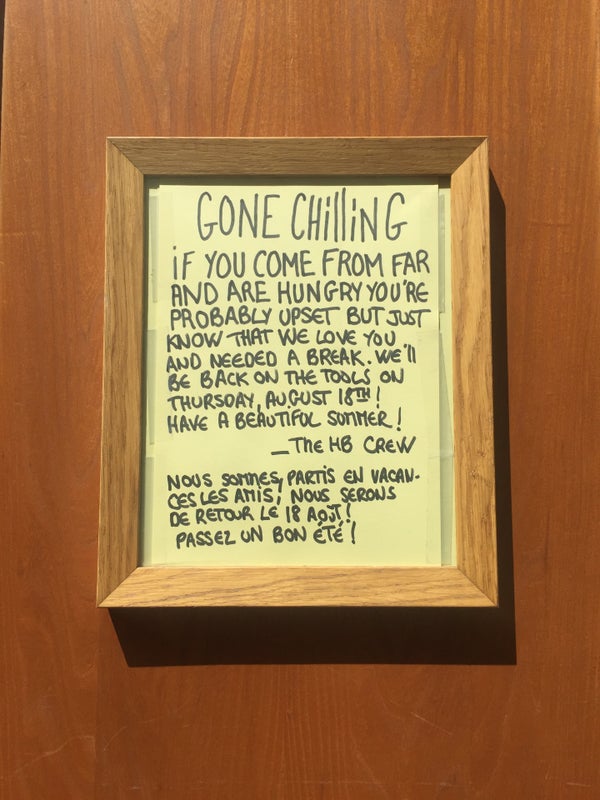 GONE CHilliNG
iF YOU COME FROM FAR
AND ARE HUNGRY YOU'RE
PROBABLY UPSET BUT JUST
KNOW THAT WE LOVE YOU
AND NEEDED A BREAK. WE'll
BE BACK ON THE TOOLS ON
THURSDAY, AUGUST 18TH!
HAVE A BEAUTIFUL SUMMER!
_THE HB CREW
NOUS SOMMES PARTIS EN VACAN-
CES LES AMIS, NOUS SERONS
DE RETOUR LE 18 AOÛT!
PASSEZ UN BON ÉTÉ!